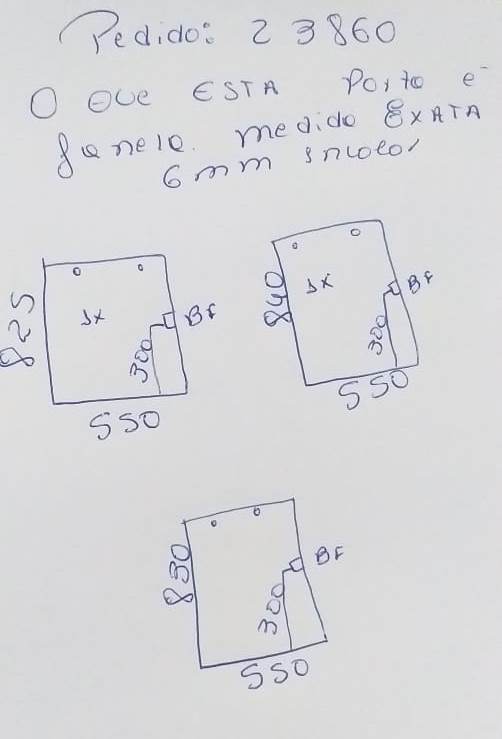 Pedido: 23860
O QUE ESTA Porta e
Janela. medida EXATA
6mm incolor
825
1x
BF
300
550
840
1x
BF
300
550
830
BF
300
550